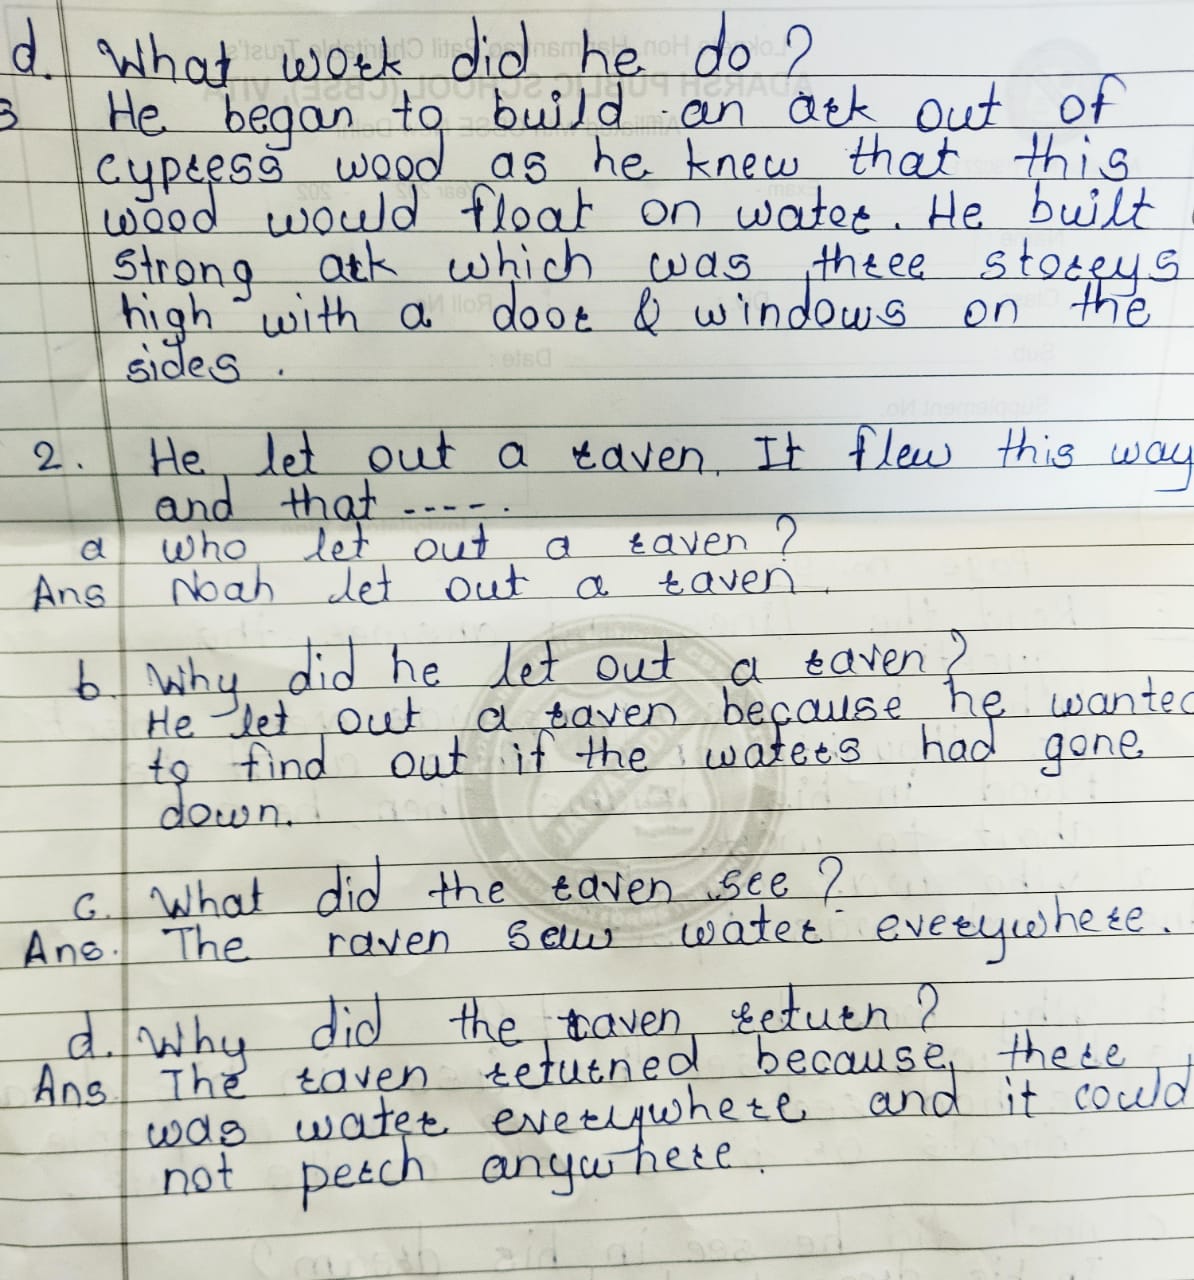 d. What work did he do?
He began to build an ark out of
cypress wood as he knew that this
wood would float on water. He built
strong ark which was three storeys
high with a door & windows on the
sides.
2. He let out a raven. It flew this way
and that -----.
a who let out a raven?
Ans Noah let out a raven.
b. Why did he let out a raven?
He let out a raven because he wanted
to find out if the waters had gone
down.
c. What did the raven see?
Ans. The raven saw water everywhere.
d. Why did the raven return?
Ans. The raven returned because there
was water everywhere and it could
not perch anywhere.